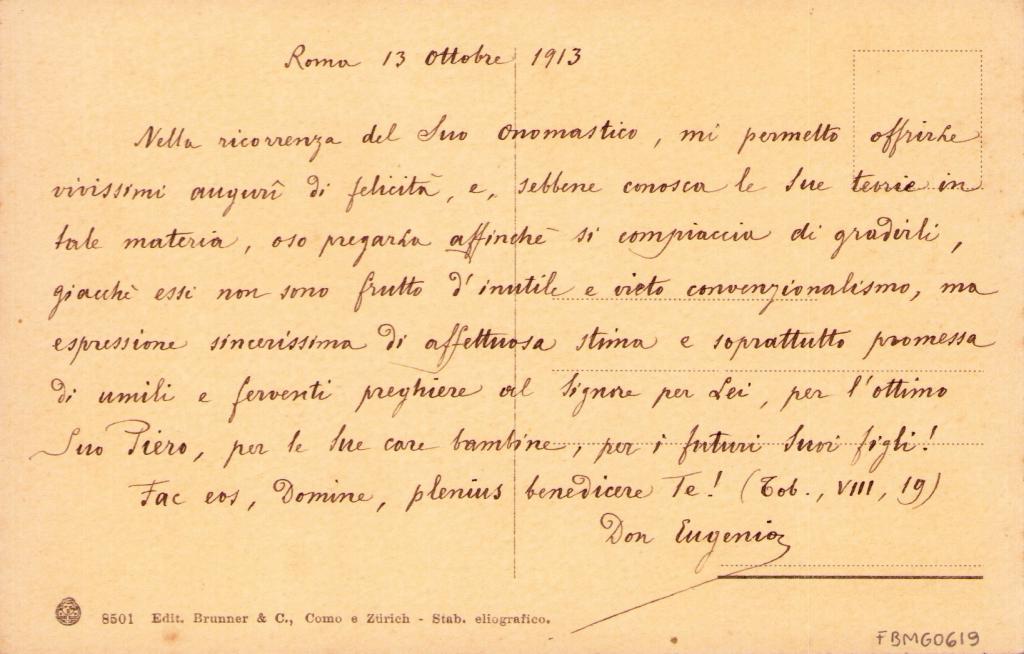 Roma 13 Ottobre 1913
Nella ricorrenza del Suo Onomastico, mi permetto offrirLe
vivissimi augurî di felicità, e, sebbene conosca le Sue teorie in
tale materia, oso pregarLa affinchè si compiaccia di gradirli,
giacchè essi non sono frutto d'inutile e vieto convenzionalismo, ma
espressione sincerissima di affettuosa stima e soprattutto promessa
di umili e ferventi preghiere al Signore per Lei, per l'ottimo
Suo Piero, per le Sue care bambine, per i futuri Suoi figli!
Fac eos, Domine, plenius benedicere Te! (Tob., VIII, 19)
Don Eugenio
8501 Edit. Brunner & C., Como e Zürich - Stab. eliografico.
FBMG0619